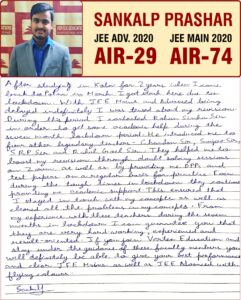 SANKALP PRASHAR
JEE ADV. 2020 JEE MAIN 2020
AIR-29 AIR-74
After studying in Kota for 2 years when I came
back to Patna in March I got stuck here due to
lockdown. With JEE Mains and Advanced being
delayed indefinitely I was tensed about my revision.
During this period I contacted Rohan Sinha Sir
in order to get some academic help during the
seven month lockdown period. He introduced me to
four other legendary teachers - Chandan Sir, Sanjeev Sir,
Sir. They helped me to
boost my revision through doubt solving sessions
on zoom as well as by providing me DPPs and
test papers on a regular basis for practice. Even
during the tough times in lockdown they continued
providing me academic support. This ensured that
I stayed in touch with my concepts as well as
cleared all the problems in my concepts. From
my experience with these teachers during the seven
months in lockdown I can guarantee you that
they are very hard working, experienced and
result-oriented. If you join Vertex Education and
stay under the guidance of these faculty members you
will definitely be able to give your best performance
and clear JEE Mains as well as JEE Advanced with
flying colours.
Sankalp